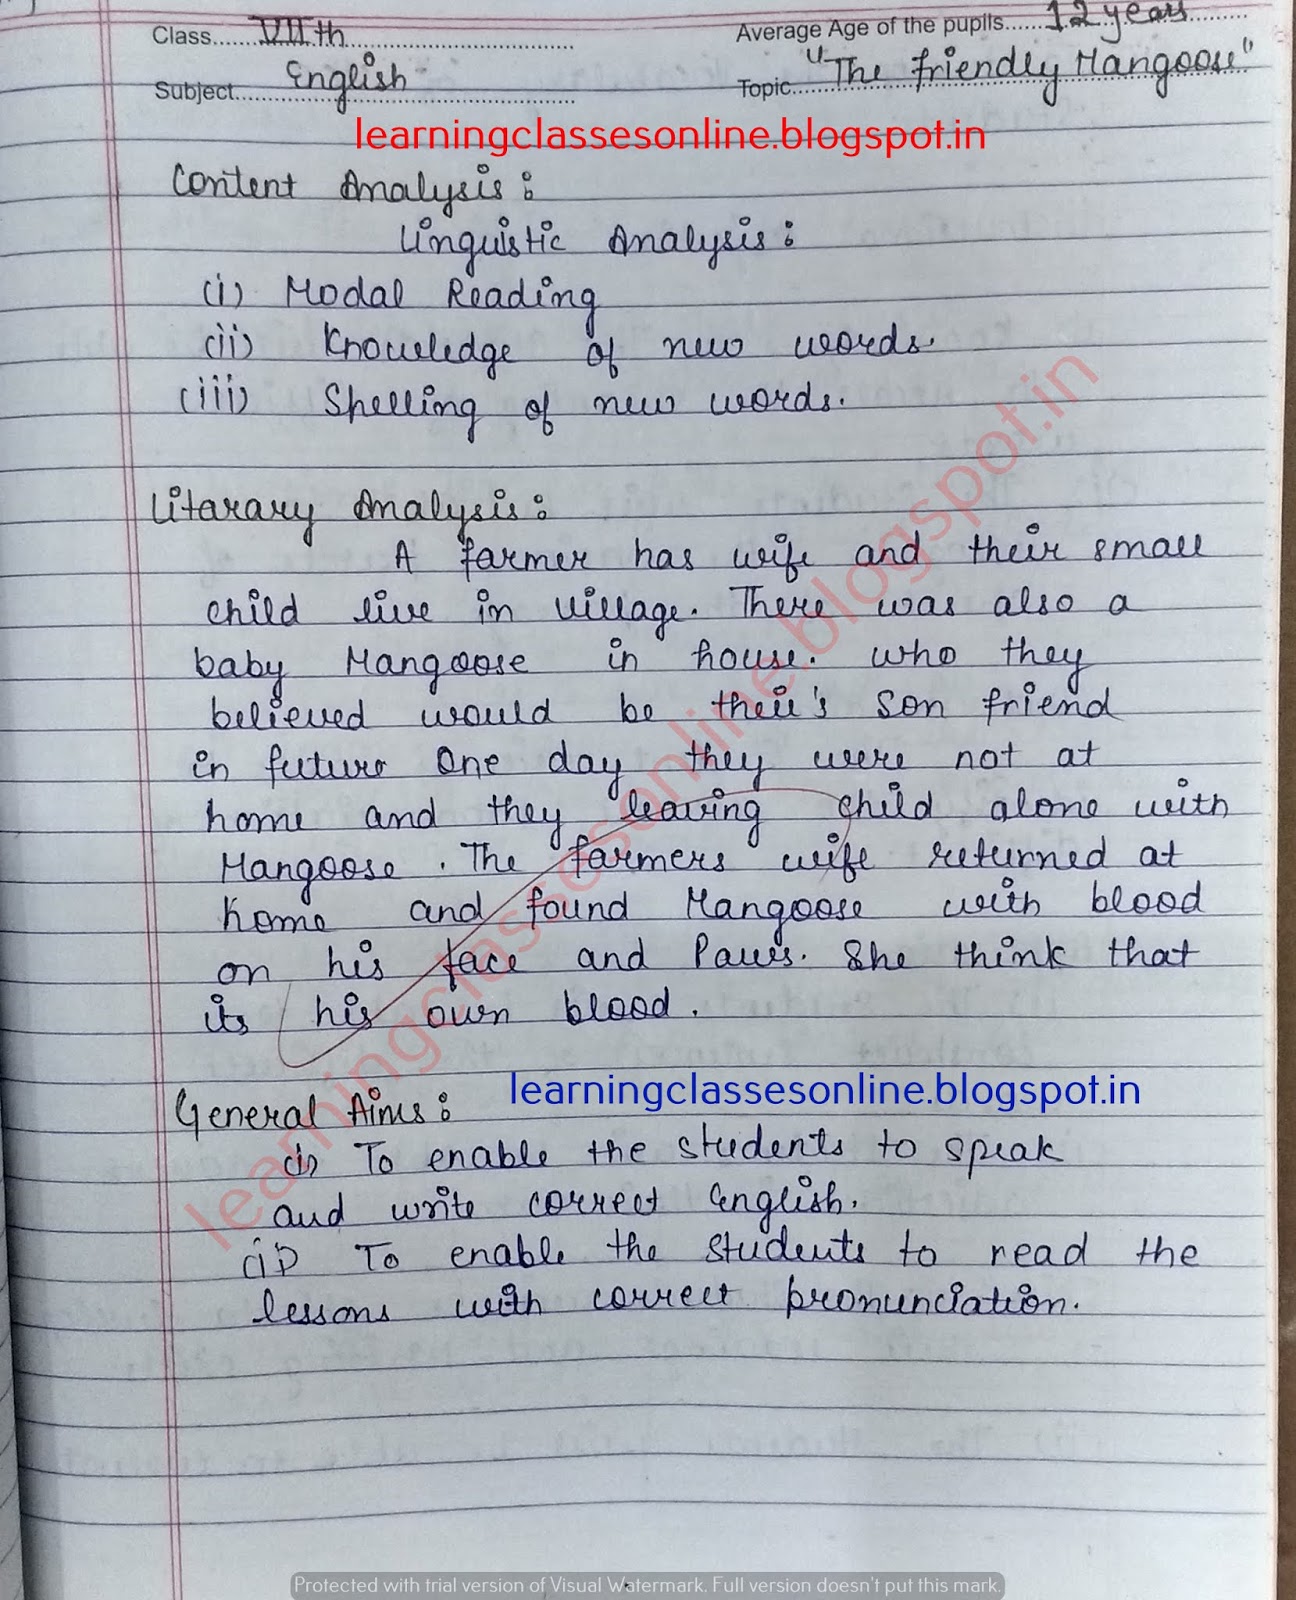 Class......VIIth..........
Average Age of the pupils......12 years..........
Subject......English..........
Topic......"The friendly Mangoose"
learningclassesonline.blogspot.in
Content Analysis:
Linguistic Analysis:
(i) Modal Reading
(ii) Knowledge of new words.
(iii) Spelling of new words.
Litarary Analysis:
A farmer has wife and their small
child live in village. There was also a
baby Mangoose in house. who they
believed would be their's son friend
in future One day they were not at
home and they leaving child alone with
Mangoose. The farmers wife returned at
home and found Mangoose with blood
on his face and Paws. She think that
its his own blood.
learningclassesonline.blogspot.in
General Aims:
learningclassesonline.blogspot.in
(i) To enable the students to speak
and write correct English.
(ii) To enable the students to read the
lessons with correct pronunciation.
Protected with trial version of Visual Watermark. Full version doesn't put this mark.